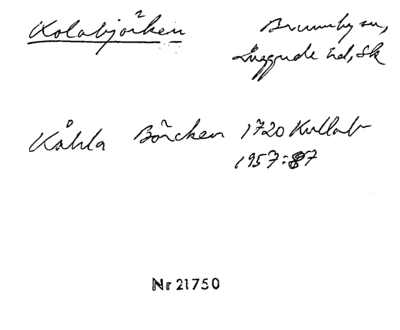 Kolabjörken Brunnby sn,
Luggude hd, Sk
Kåhla Börcken 1720 Kullab
1957:87
Nr 21750